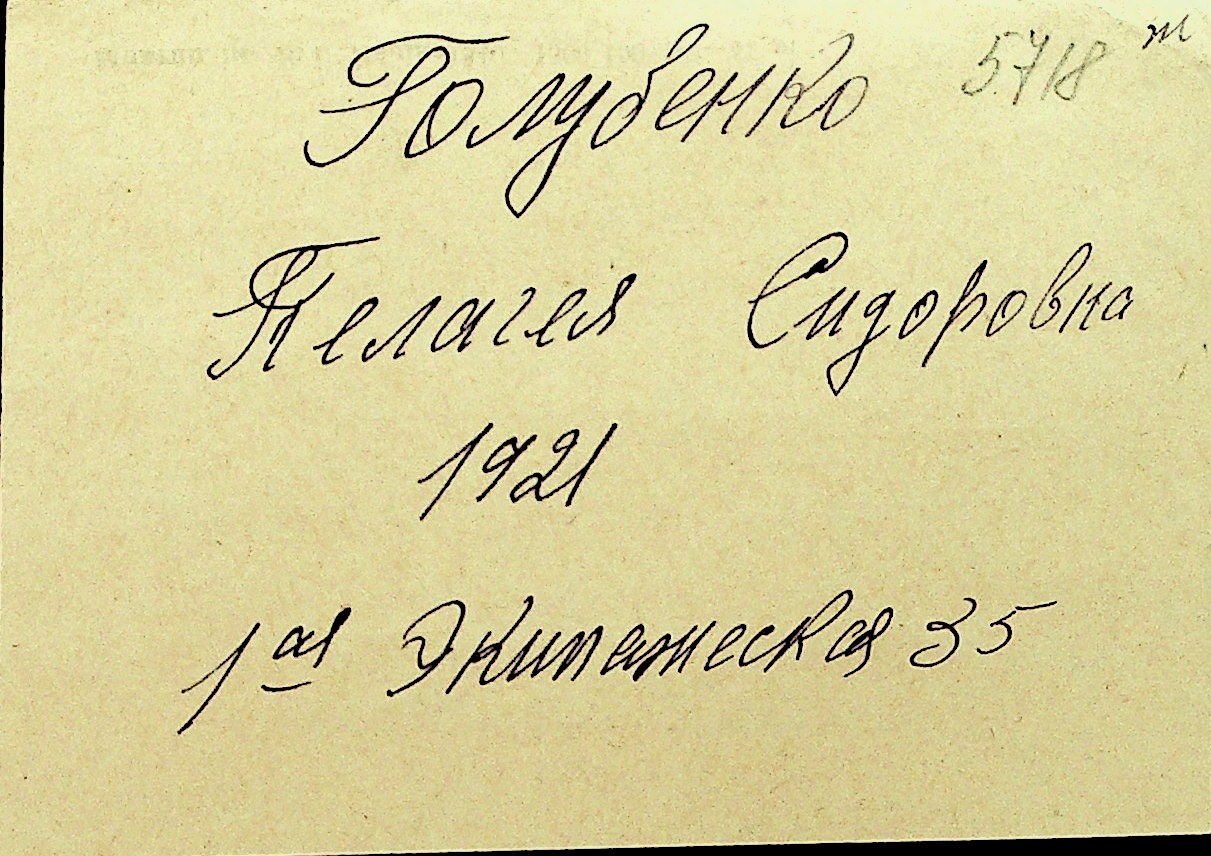 Голубенко 5718 т
Пелагея Сидоровна
1921
1ая Экипажеская 35